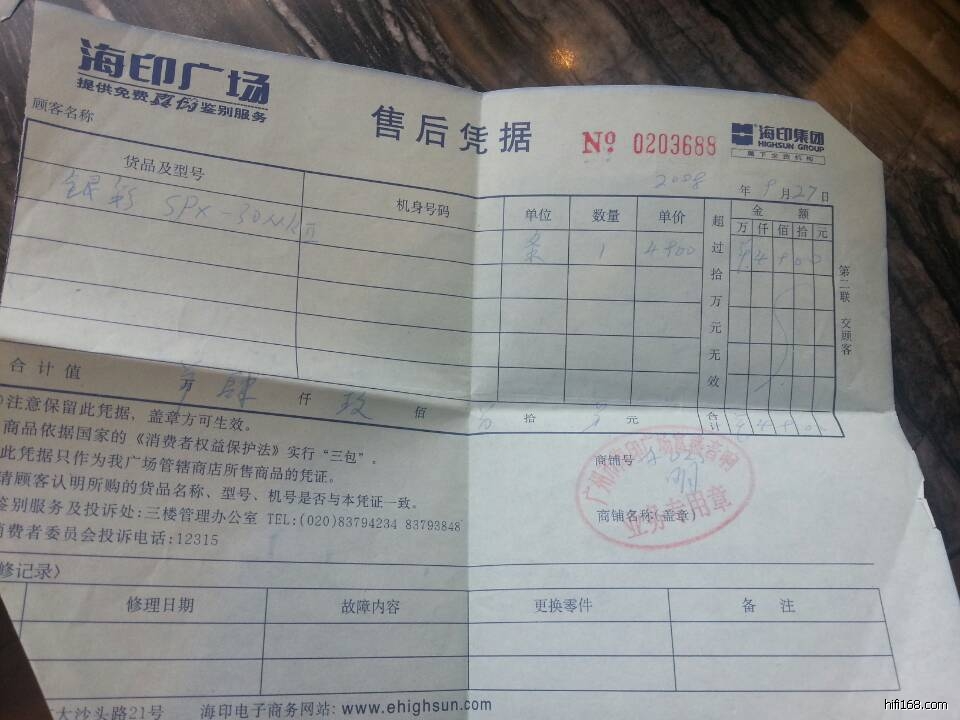 海印广场
提供免费真伪鉴别服务
售后凭据
No 0203688
海印集团
HIGHSUN GROUP
属下全资机构
顾客名称
2008 年 9 月 27 日
货品及型号 机身号码 单位 数量 单价 超过拾万元无效 金额
万 仟 佰 拾 元
银彩 SPX-30MKII 条 1 4900 4 9 0 0
第二联 交顾客
合计值 万 肆 仟 玖 佰 拾 元 合计 4 9 0 0
注意保留此凭据，盖章方可生效。
商品依据国家的《消费者权益保护法》实行“三包”。
此凭据只作为我广场管辖商店所售商品的凭证。
请顾客认明所购的货品名称、型号、机号是否与本凭证一致。
鉴别服务及投诉处:三楼管理办公室 TEL:(020)83794234 83793848
消费者委员会投诉电话:12315
商铺号
商铺名称(盖章)
业务专用章
修记录〉
修理日期 故障内容 更换零件 备 注
大沙头路21号 海印电子商务网站: www.ehighsun.com
hifi168.com